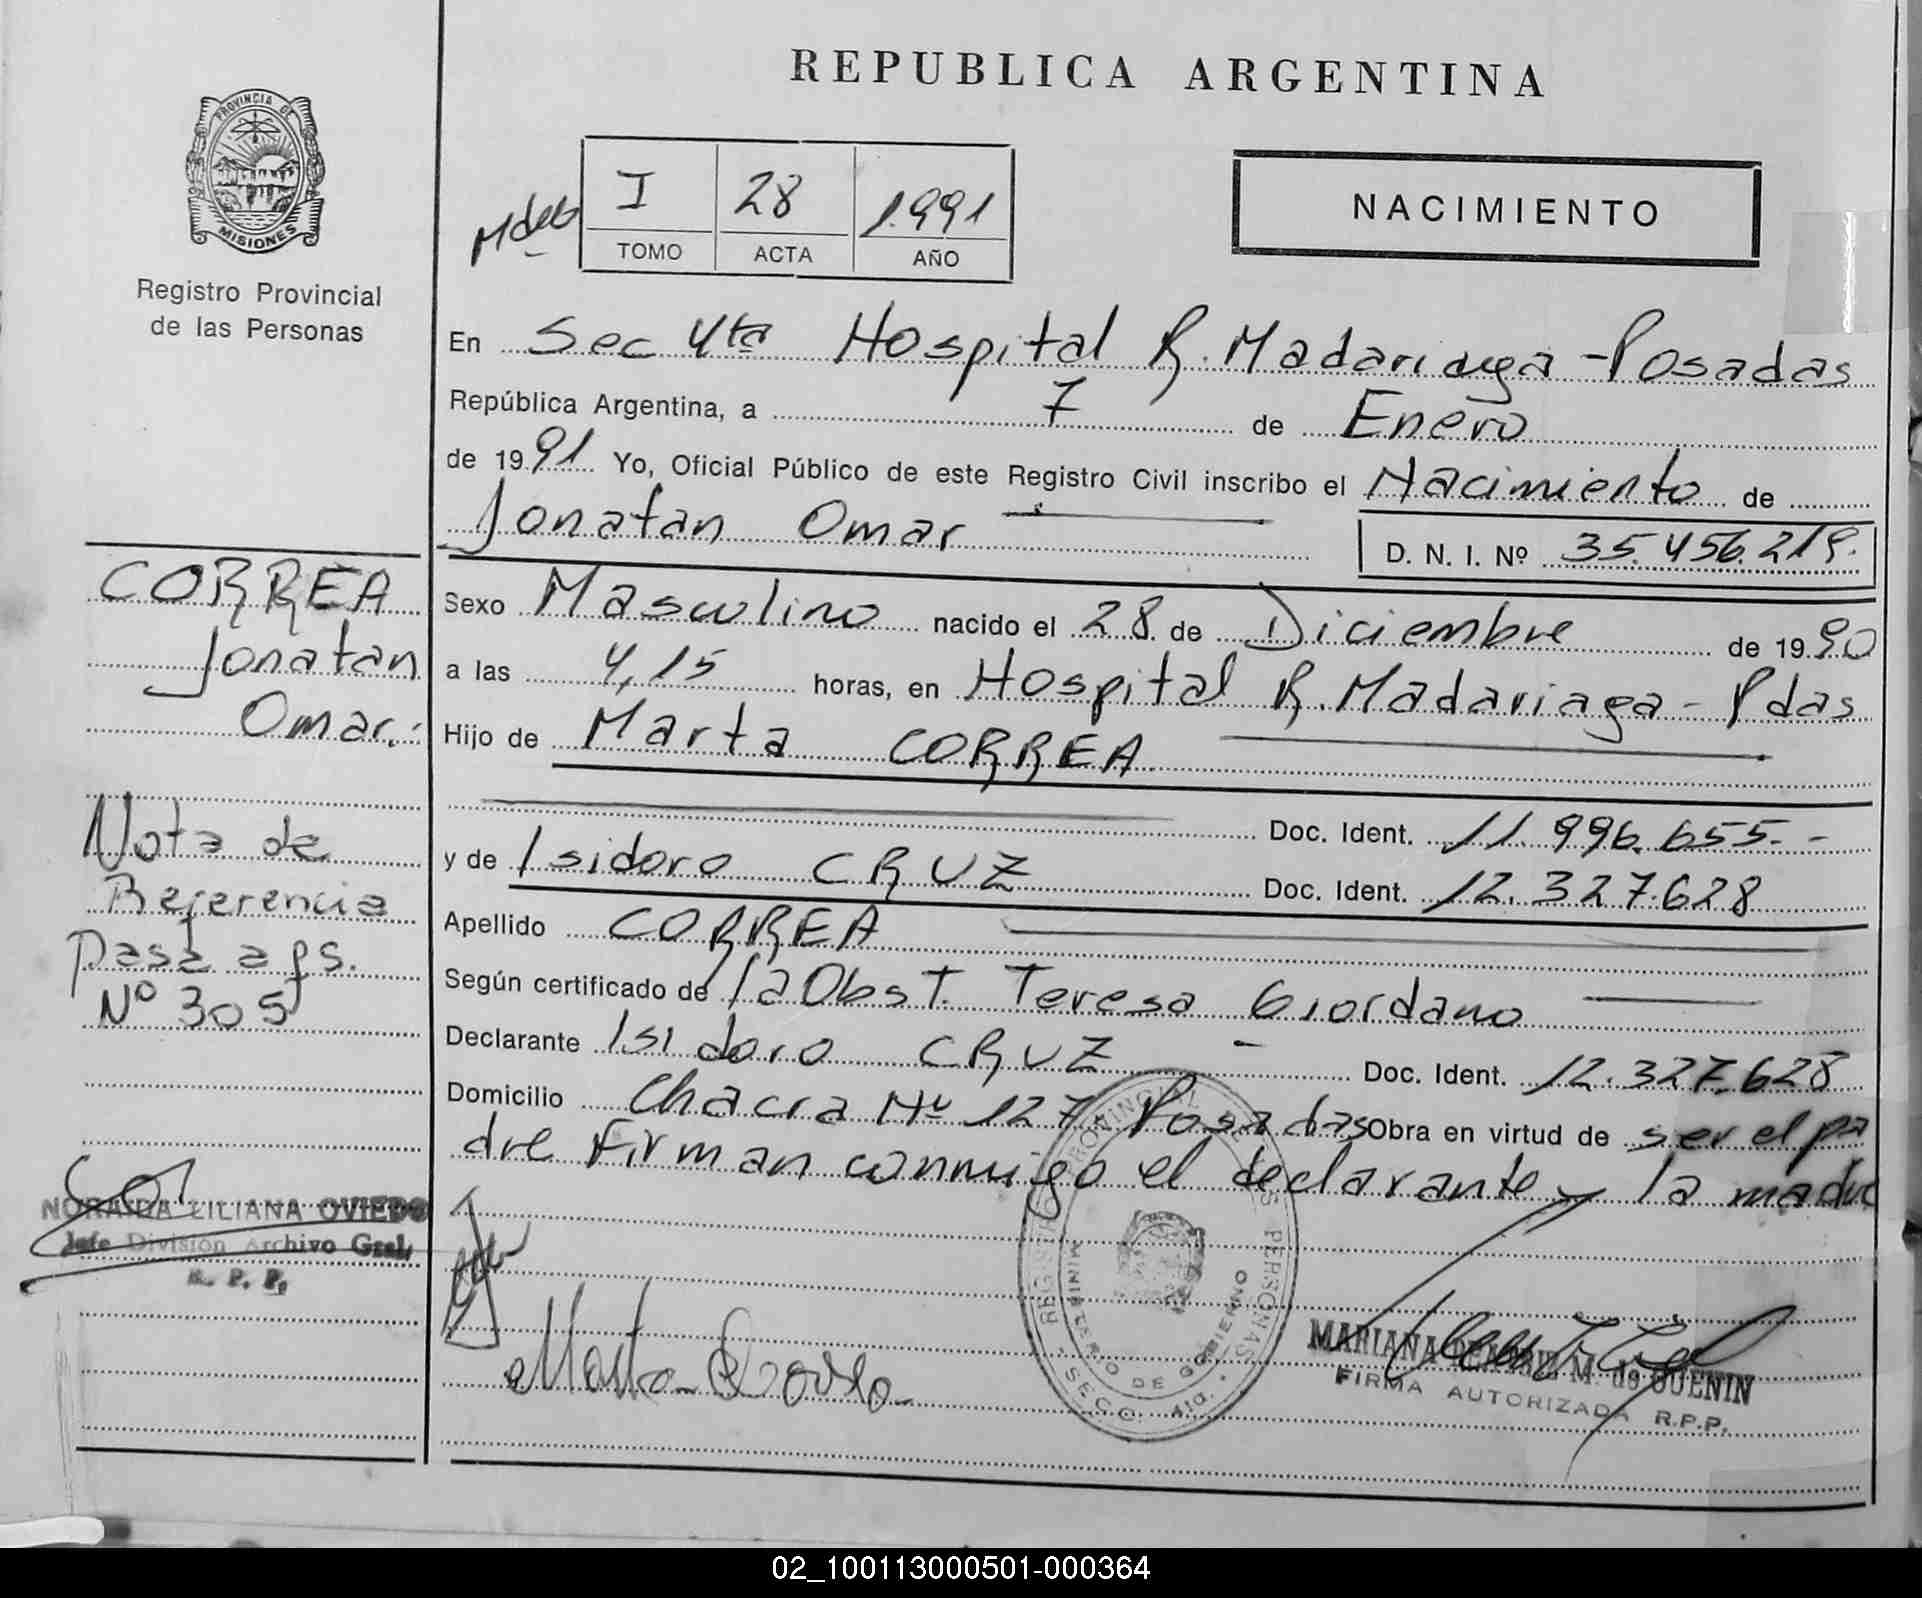 REPUBLICA ARGENTINA
PROVINCIA DE
MISIONES
Registro Provincial
de las Personas
I 28 1.991
TOMO ACTA AÑO
NACIMIENTO
En Sec 4ta Hospital R. Madariaga - Posadas
República Argentina, a 7 de Enero
de 1991 Yo, Oficial Público de este Registro Civil inscribo el Nacimiento de
Jonatan Omar
D. N. I. Nº 35.456.219.
Sexo Masculino nacido el 28 de Diciembre de 1990
a las 4,15 horas, en Hospital R. Madariaga - Pdas
Hijo de Marta CORREA
Doc. Ident. 11.996.655.-
y de Isidoro CRUZ Doc. Ident. 12.327.628
Apellido CORREA
Según certificado de la Obst. Teresa Giordano
Declarante Isidoro CRUZ - Doc. Ident. 12.327.628
Domicilio Chacra Nº 127 Posadas Obra en virtud de ser el pa
dre Firman conmigo el declarante y la madre
Marta Correa
REGISTRO PROVINCIAL DE LAS PERSONAS
MINISTERIO DE GOBIERNO
SECC. 4ta.
MARIANA M. de GUENIN
FIRMA AUTORIZADA R.P.P.
CORREA
Jonatan
Omar.
Nota de
Referencia
Pasa a fs.
Nº 305
NORAIDA LILIANA OVIEDO
Jefe División Archivo Gral.
R. P. P.
02_100113000501-000364